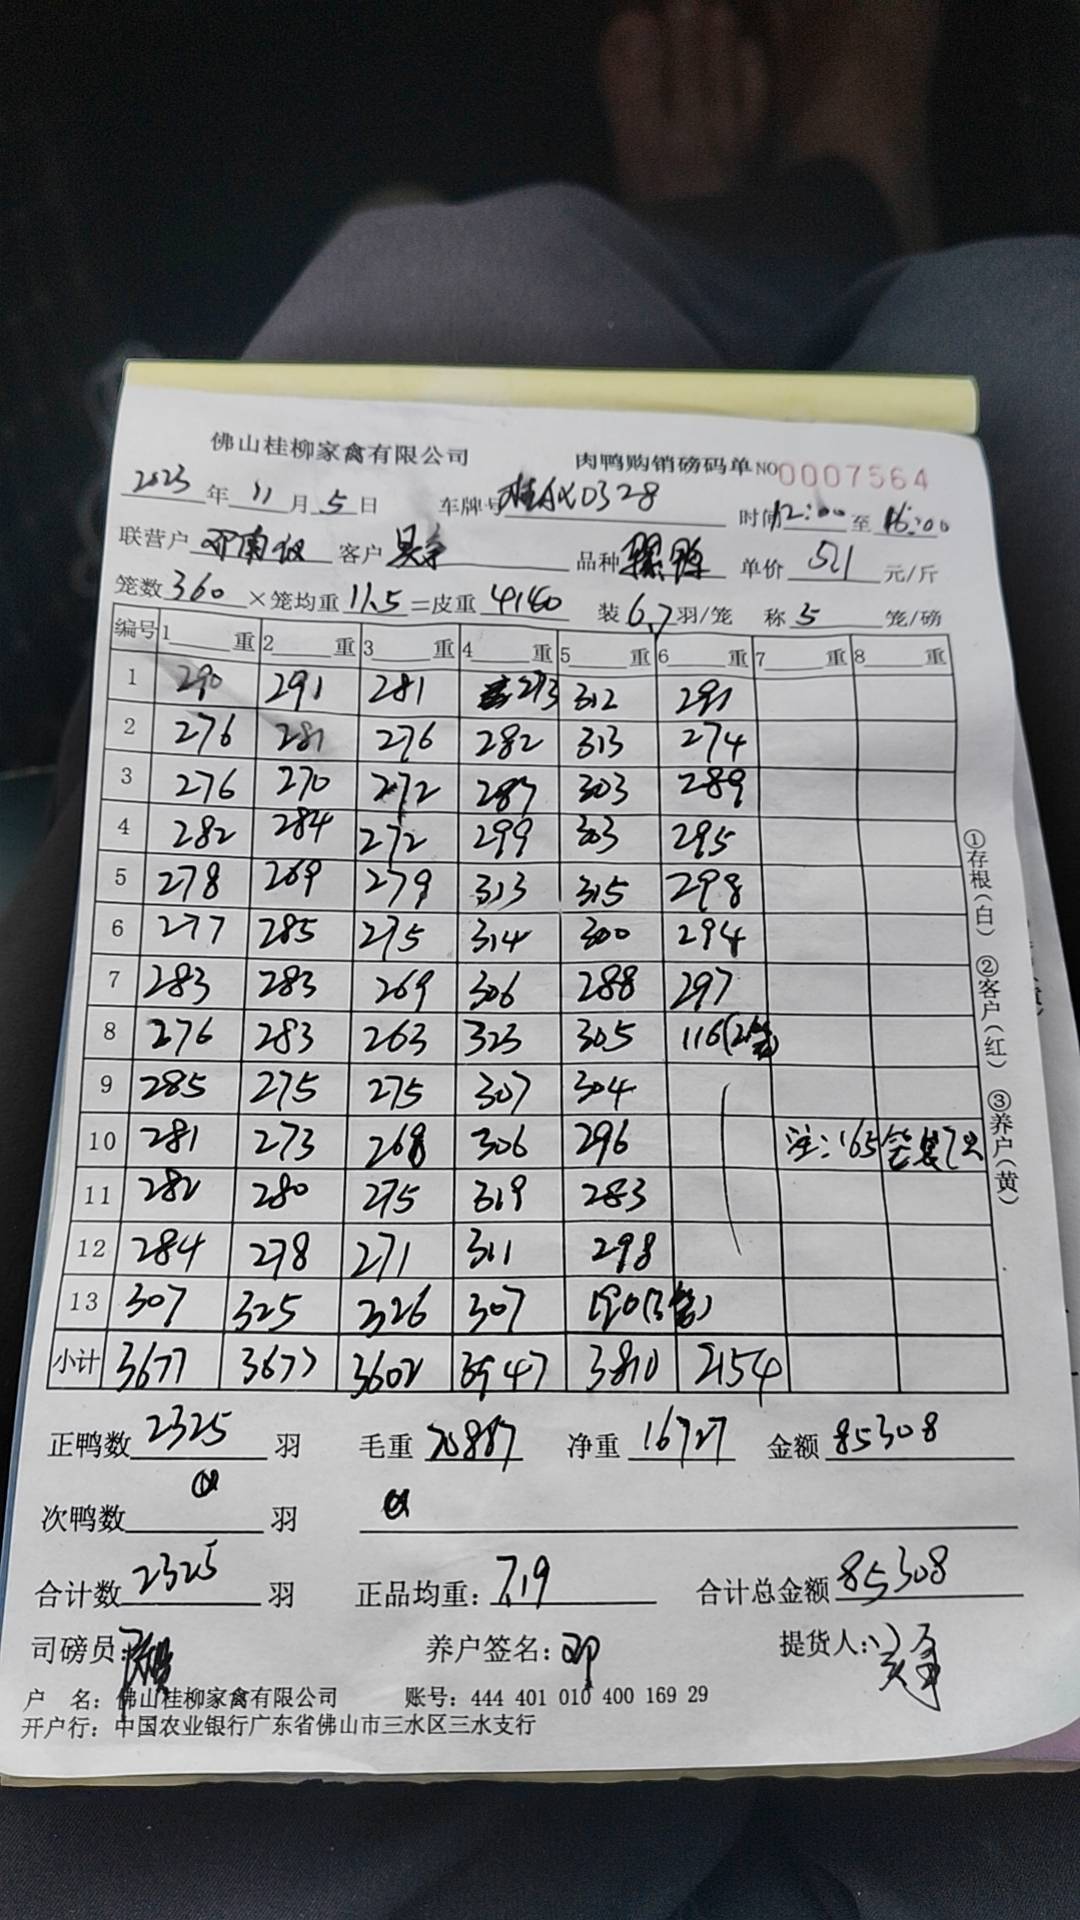 佛山桂柳家禽有限公司 肉鸭购销磅码单 NO 0007564
2023 年 11 月 5 日 车牌号 0328 时间 12:00 至 16:00
联营户 邓南 客户 吴 品种 单价 5.1 元/斤
笼数 360 ×笼均重 11.5 =皮重 4140 装 6.7 羽/笼 称 5 笼/磅
编号 1 重 2 重 3 重 4 重 5 重 6 重 7 重 8 重
1 290 291 281 273 312 291
2 276 281 276 282 313 274
3 276 270 272 287 303 289
4 282 284 272 299 303 295
5 278 269 279 313 315 298
6 277 285 275 314 300 294
7 283 283 269 306 288 297
8 276 283 263 323 305 116(2笼)
9 285 275 275 307 304
10 281 273 268 306 296 注:165笼装7只
11 282 280 275 319 283
12 284 278 271 311 298
13 307 325 326 307 190(3笼)
小计 3677 3677 3602 3947 3810 2154
正鸭数 2325 羽 毛重 20887 净重 16727 金额 85308
次鸭数 0 羽 0
合计数 2325 羽 正品均重: 7.19 合计总金额 85308
司磅员: 养户签名: 邓 提货人:
户 名: 佛山桂柳家禽有限公司 账号: 444 401 010 400 169 29
开户行: 中国农业银行广东省佛山市三水区三水支行
①存根(白) ②客户(红) ③养户(黄)